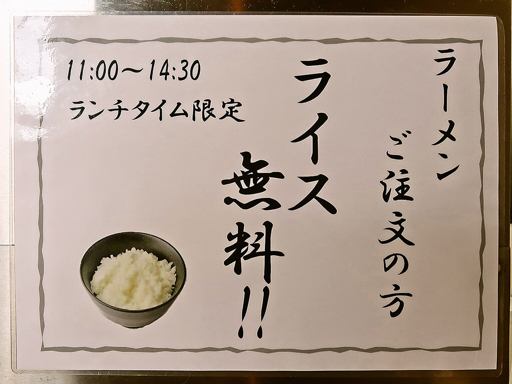 ラーメン
ご注文の方
ライス
無料!!
11:00〜14:30
ランチタイム限定